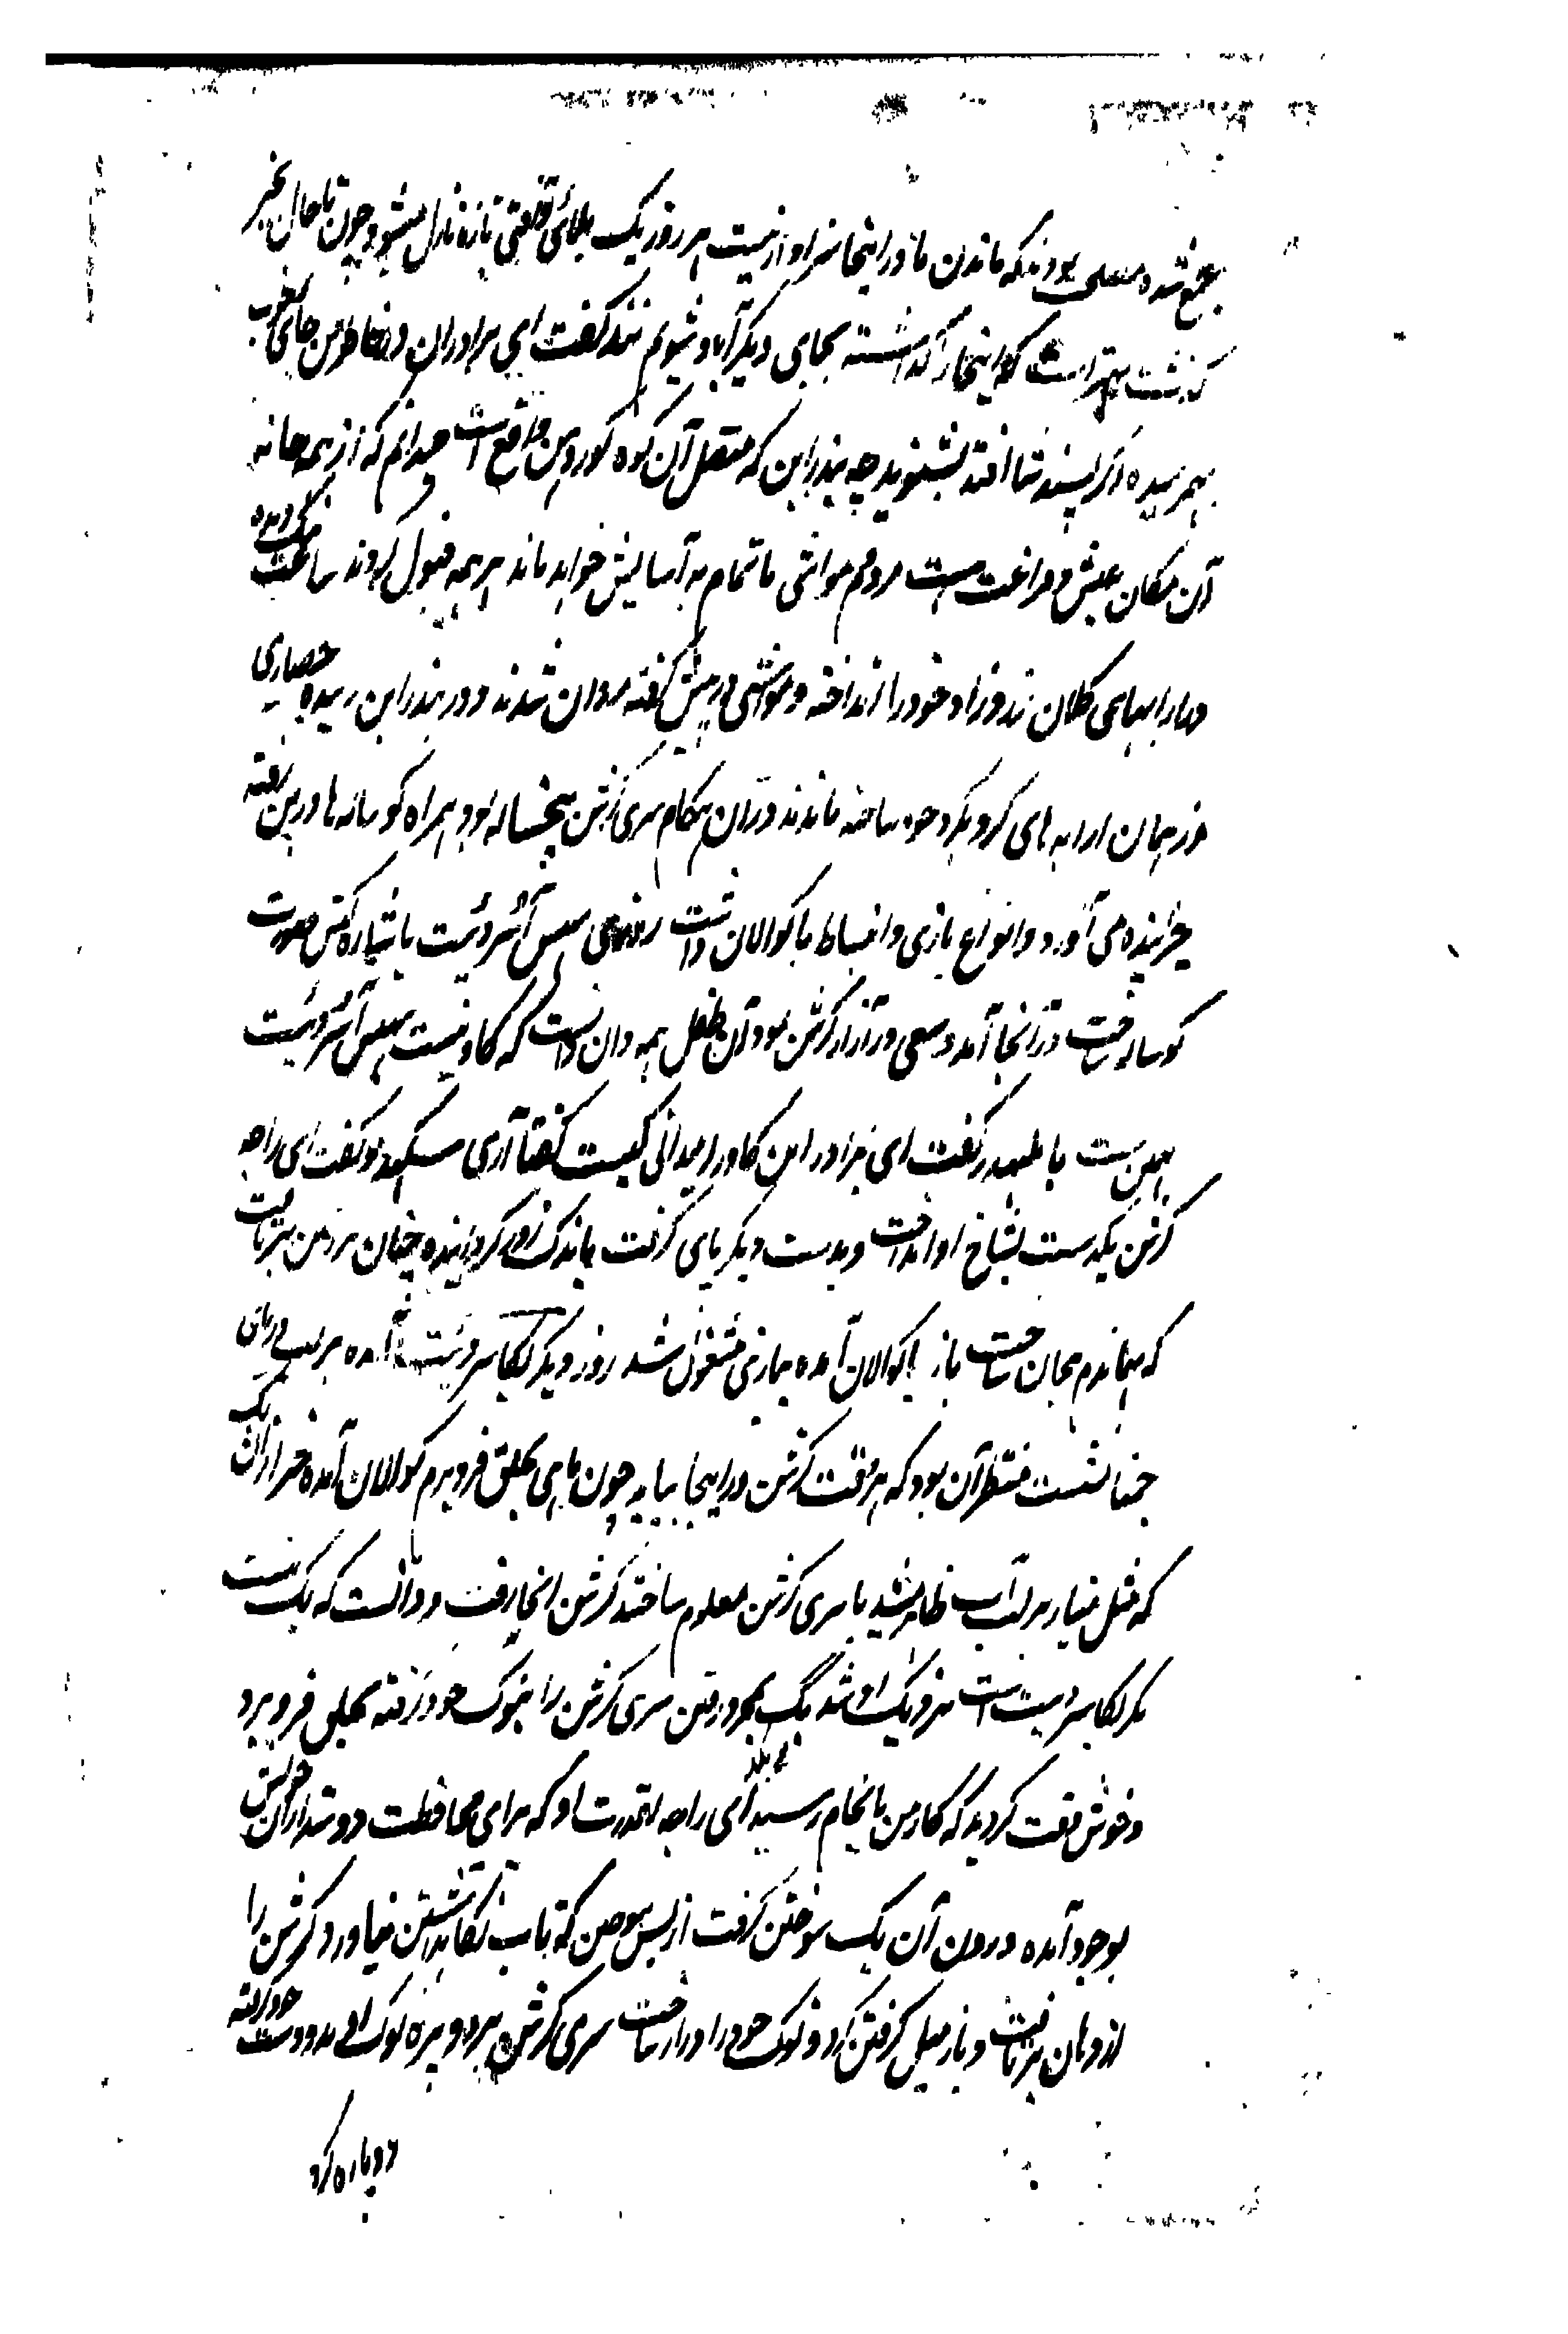 جمع شده مصلحت نمودند که ماندن ما در اینجا سزاوار نیست هر روز یک بلائی و آفتی تازه نازل میشود چون تا حال بخیر
گذشت بهتر است که اینجا را گذاشته بجای دیگر آباد شویم نند گفت ای برادران در خاطر من جای خوب
بهم رسیده اگر پسند شما افتد بشنوید چه بندرابن که متصل آن کوه گوردهن واقع است میدانم که از همه جا به
آن مکان عیش و فراغت است مردم مواشی ما تمام به آسایش خواهد ماند همه قبول کردند ساعت نیک دیده
و بار ارابهای کلان زد و زاد خود را انداخته و مواشی در پیش گرفته روان شدند و در بندرابن رسیده حصاری
از همان ارابه های گرد بگرد خود ساخته ماندند در آن هنگام سری کرشن پنجساله بود همراه گوساله ها در بن رفته
چرانیده می آورد و انواع بازی و انبساط با گوالان داشت روزی آسر دئیت باشاره کنس صورت
گوساله ساخت در آنجا آمد و سعی در آزار کرشن نمود آن طفل همه دان دانست که گاو نیست آسر دئیت
همین است با بلبهدر گفت ای برادر این گاو را میدانی کیست گفتا آری سکهدیو گفت ای راجه
کرشن یکدست بشاخ او انداخت و بدست دیگر پای گرفت باندک زور گردانیده چنان بر زمین برتافت
که هماندم بیجان ساخت باز با گوالان آمده ببازی مشغول شد روز دیگر بکاسر دئیت آمده بر لب دریای
جمنا نشست منتظر آن بود که هر وقت کرشن در اینجا بیاید چون ماهی بحلق فرو برم گوالان آمده خبر از آن بک
که مثل منار بر لب آب ظاهر شد با سری کرشن معلوم ساختند کرشن آنجا رفت و دانست که بک نیست
مگر بکاسر دئیت است نزدیک او شد بک بمجرد رفتن سری کرشن را بنوک خود گرفته بحلق فرو برد
و خوش وقت گردید که کار من بانجام رسید ای راجه قدرت او که برای محافظت دوستداران خویش
بوجود آمده درون آن بک سوختن گرفت از بس سوختن که تاب نگاهداشتن نیاورد کرشن را
از دهان برتافت و باز میل گرفتن کرد و نوک خود را دراز ساخت سری کرشن هر دو پره نوک او بدو دست خود گرفته
دوپاره کرد